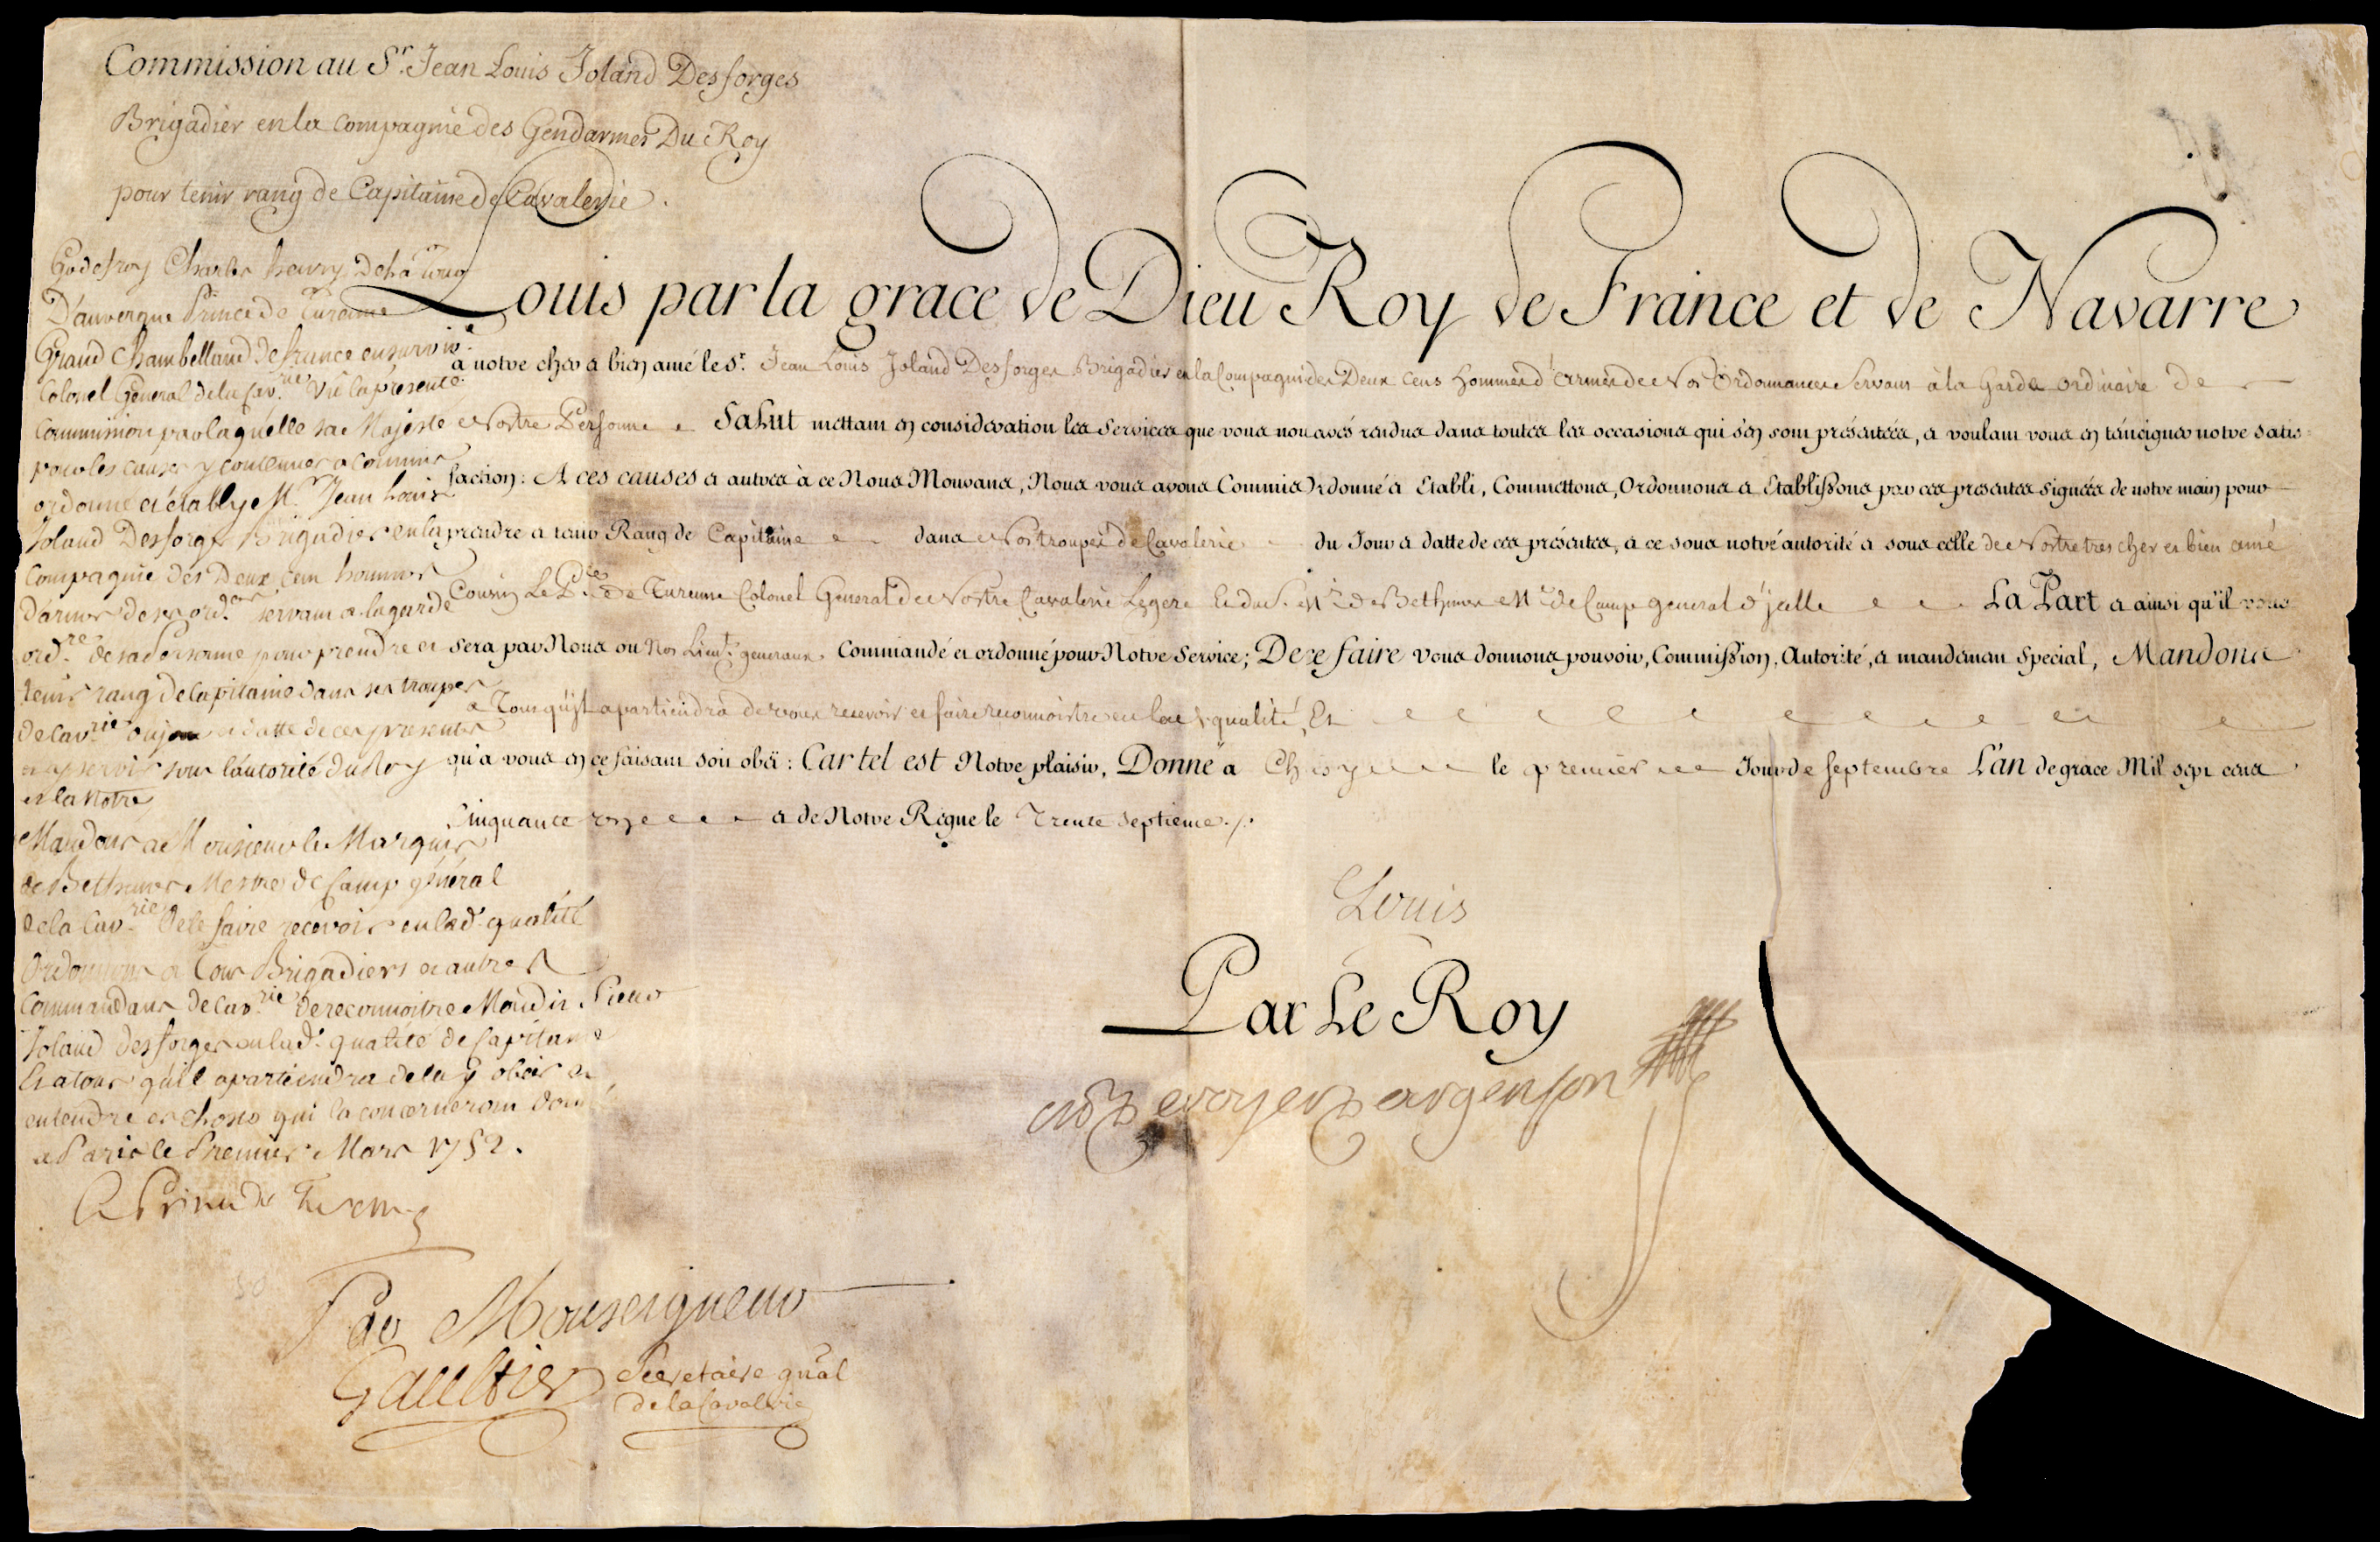 Commission au Sr. Jean Louis Joland Desforges
Brigadier en la compagnie des Gendarmes Du Roy
pour tenir rang de Capitaine de Cavalerie.
Louis par la grace de Dieu Roy de France et de Navarre
à notre cher et bien amé le Sr. Jean Louis Joland Desforges Brigadier en la Compagnie des Deux Cens hommes d'Armes de Nos Ordonnances Servans à la Garde ordinaire de
Nostre Personne Salut mettant en consideration les Services que vous nous avés rendus dans toutes les occasions qui s'en sont présentées, et voulant vous en témoigner notre satis-
faction: A ces causes et autres à ce Nous Mouvans, Nous vous avons Commis Ordonné et Etabli, Commettons, Ordonnons et Etablissons par ces presentes signées de notre main pour
prendre et tenir Rang de Capitaine dans Nos troupes de Cavalerie du Jour et datte de ces présentes, et ce sous notre autorité et sous celle de Nostre tres cher et bien amé
Cousin Le Pce de Turenne Colonel General de Nostre Cavalerie Legere Et du S. Mis de Bethunes Me de Camp general d'Jcelle La Part et ainsi qu'il vous
sera par Nous ou Nos Lieuts. generaux. Commandé et ordonné pour Notre Service; De ce faire vous donnons pouvoir, Commission, Autorité, et mandement Special, Mandons
à Tous qu'il apartiendra de vous recevoir et faire reconnoistre en lad. qualité, Et
qu'à vous en ce faisant soit obëi: Car tel est Notre plaisir, Donné à Choisy le premier Jour de septembre L'an de grace Mil sept cens
Cinquante un et de Notre Regne le Trente septieme./.
Louis
Par Le Roy
M de Voyer d'argenson
Godefroy Charles henry De la tour
D'auvergne Prince de Turenne
Grand Chambelland de france en surviv.ce
Colonel General de la Cav.rie Vû la présente
Commission par laquelle sa Majesté
pour les causes y contenues a commis
ordonné et étably M. Jean Louis
Joland Desforges Brigadier en la
Compagnie des Deux cens hommes
d'armes de ses ord.ces servant a la garde
ord.re de sa Personne pour prendre et
tenir rang de Capitaine dans ses troupes
de Cav.rie du jour et datte de ces presentes
et servir sous l'autorité du Roy
et la Notre
Mandons a Monsieur le Marquis
de Bethunes Mestre de Camp général
de la Cav.rie de le faire recevoir en lad. qualité
Ordonnons a Tous Brigadiers et autres
Commandans de Cav.rie de reconnoitre Mondit. Sieur
Joland Desforges en lad. qualité de Capitaine
Et a tous qu'il apartiendra de luy obéir et
entendre es choses qui la concerneront donné
a Paris le Premier Mars 1752.
Le Prince de Turenne
Par Monseigneur
Gaultier Secretaire gnãl
de la Cavalerie